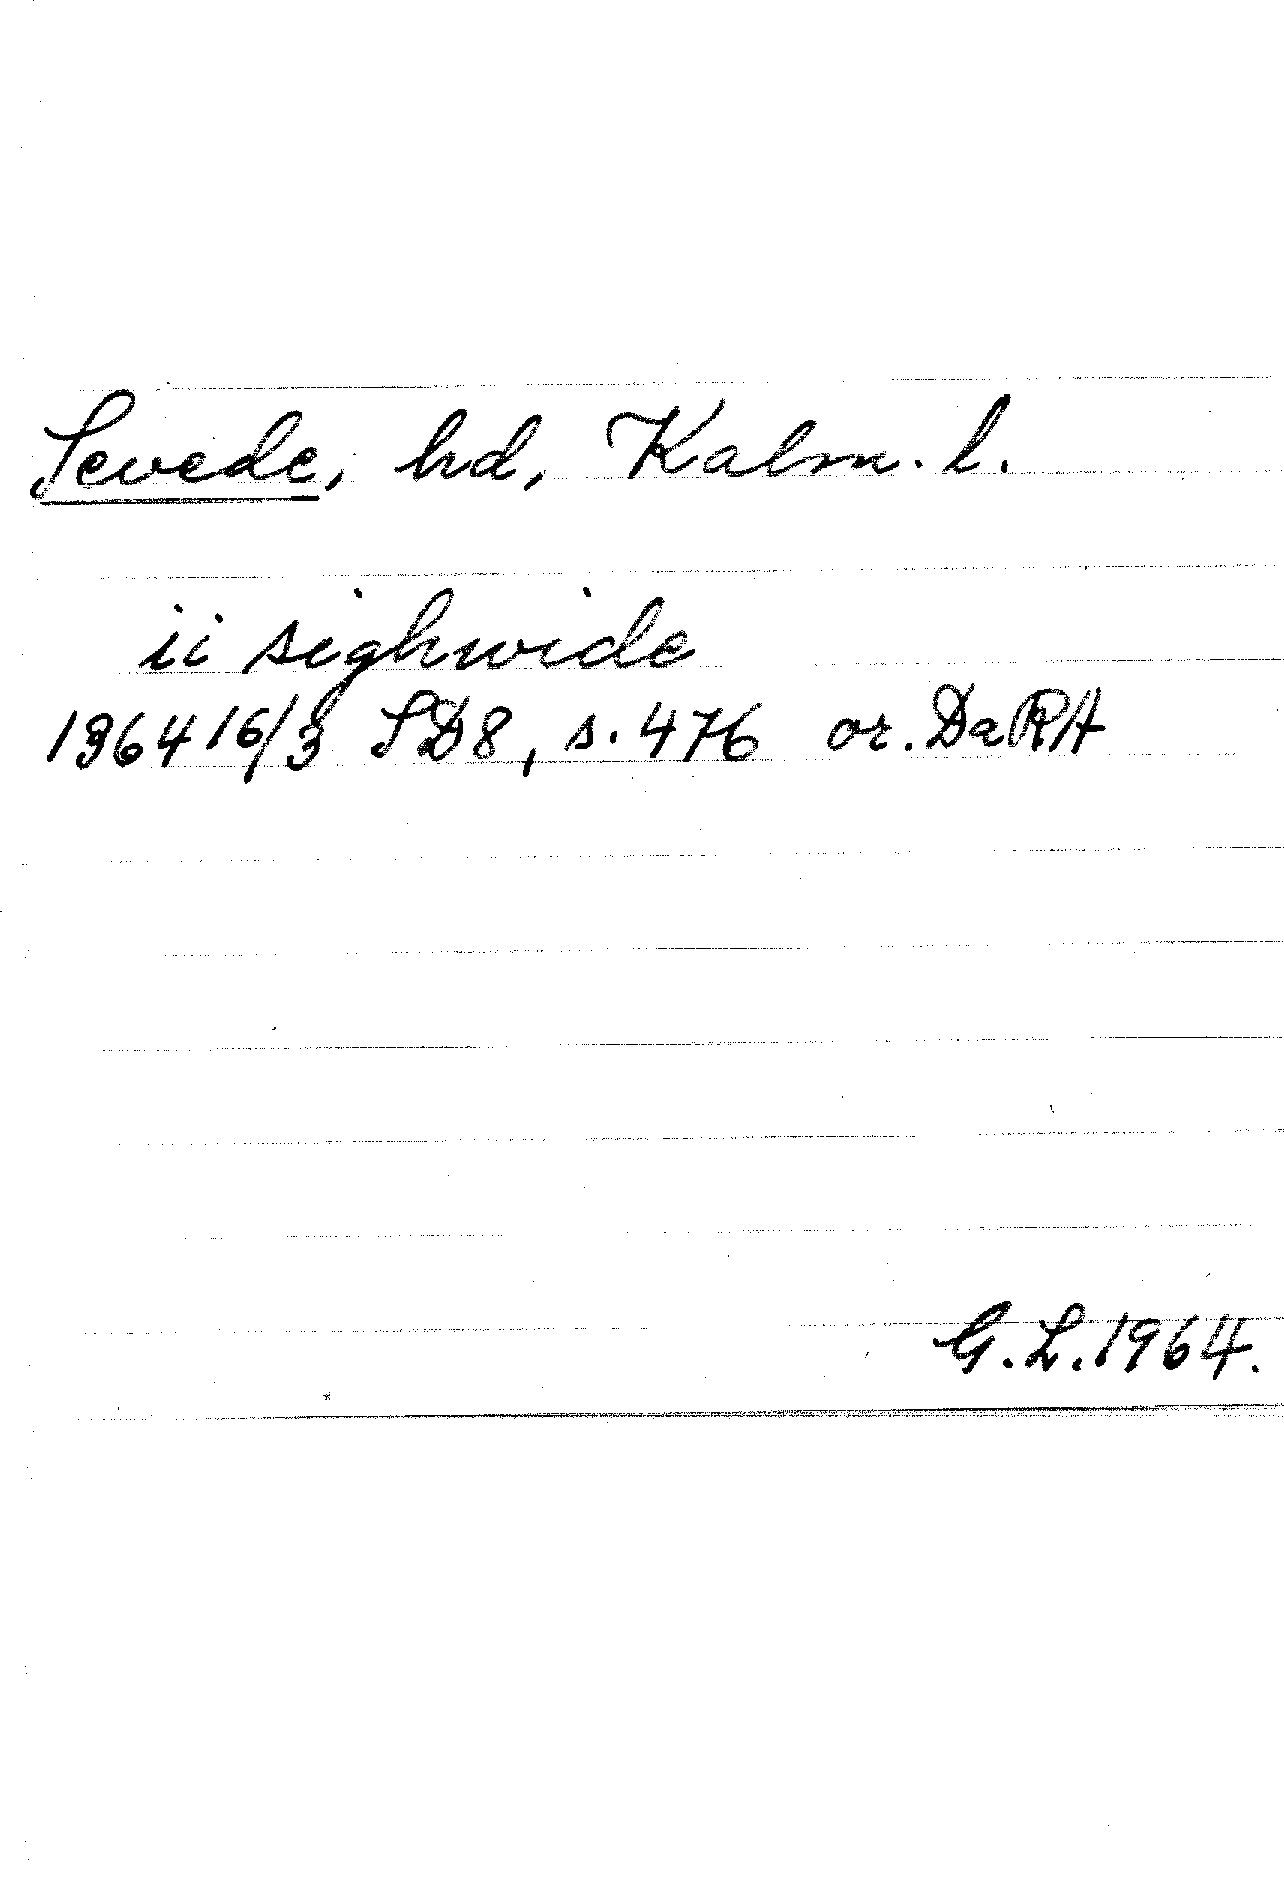 Sevede, hd, Kalm. l.
ii sighwide
1364 16/3 SD8, s. 476 or. DaRA
G. L. 1964.